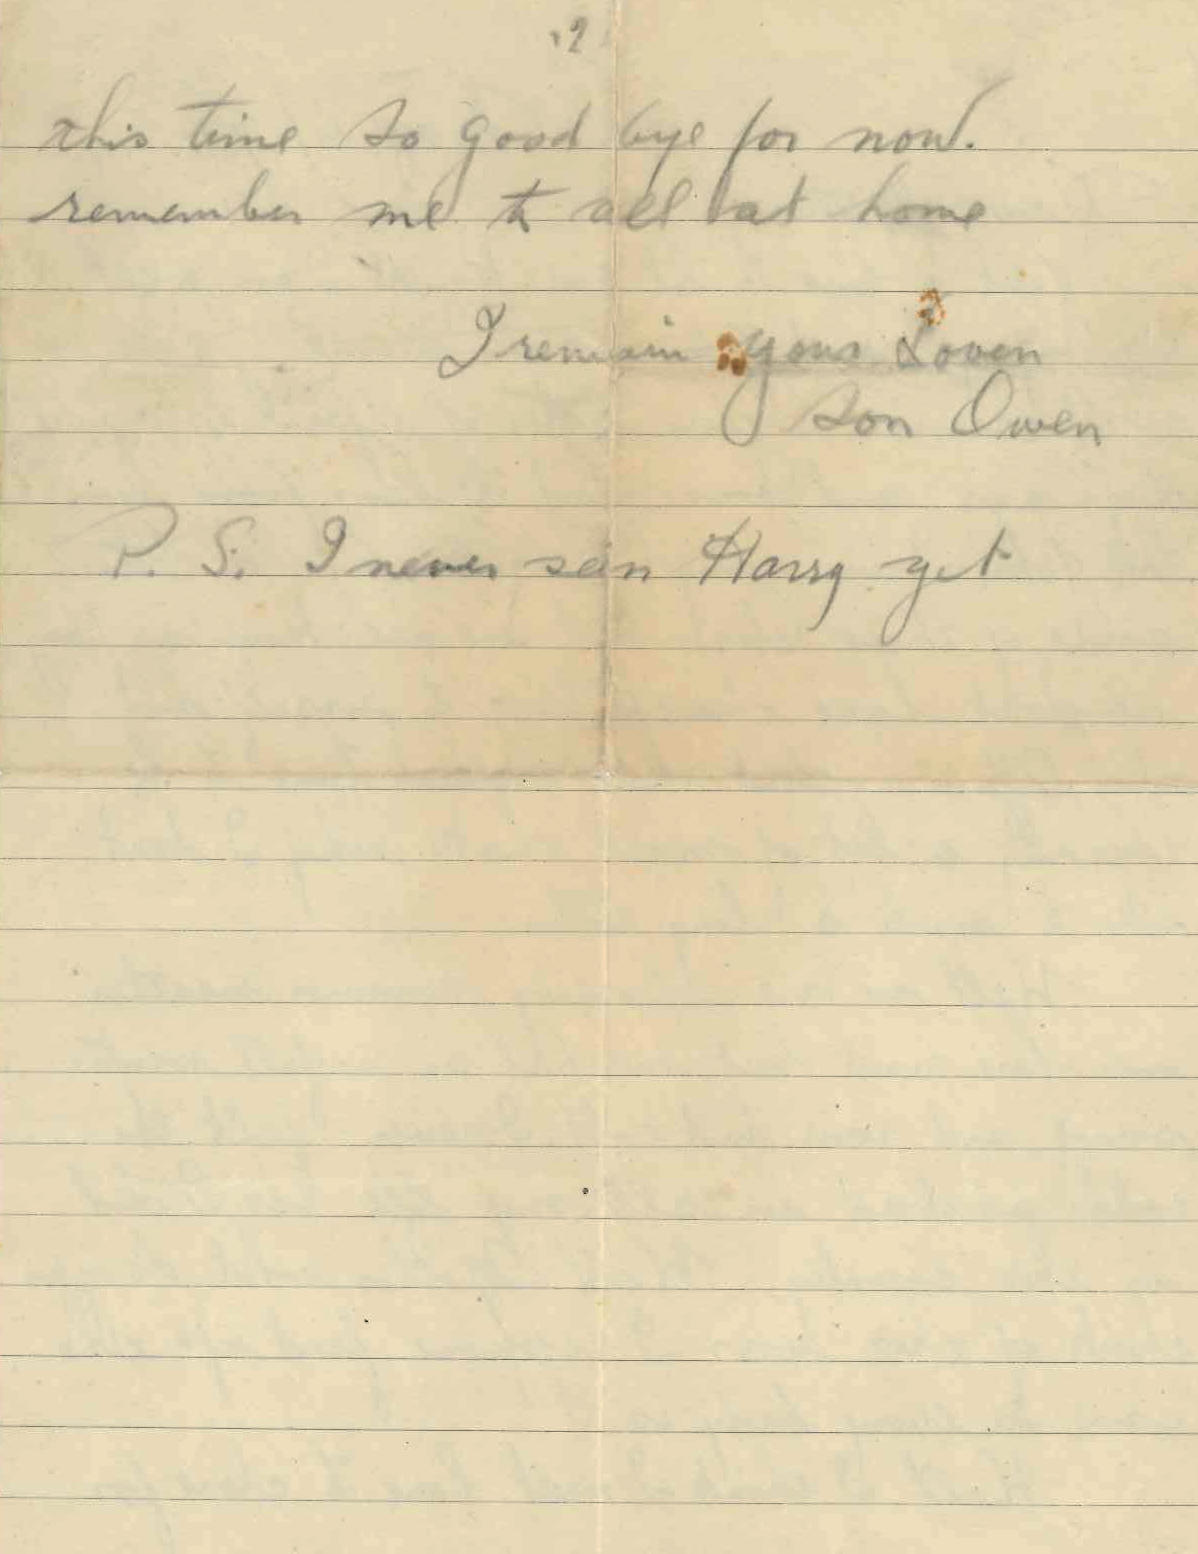 2
this time so good bye for now.
remember me to all at home
I remain your Loven
son Owen
P. S. I never sein Harry yet